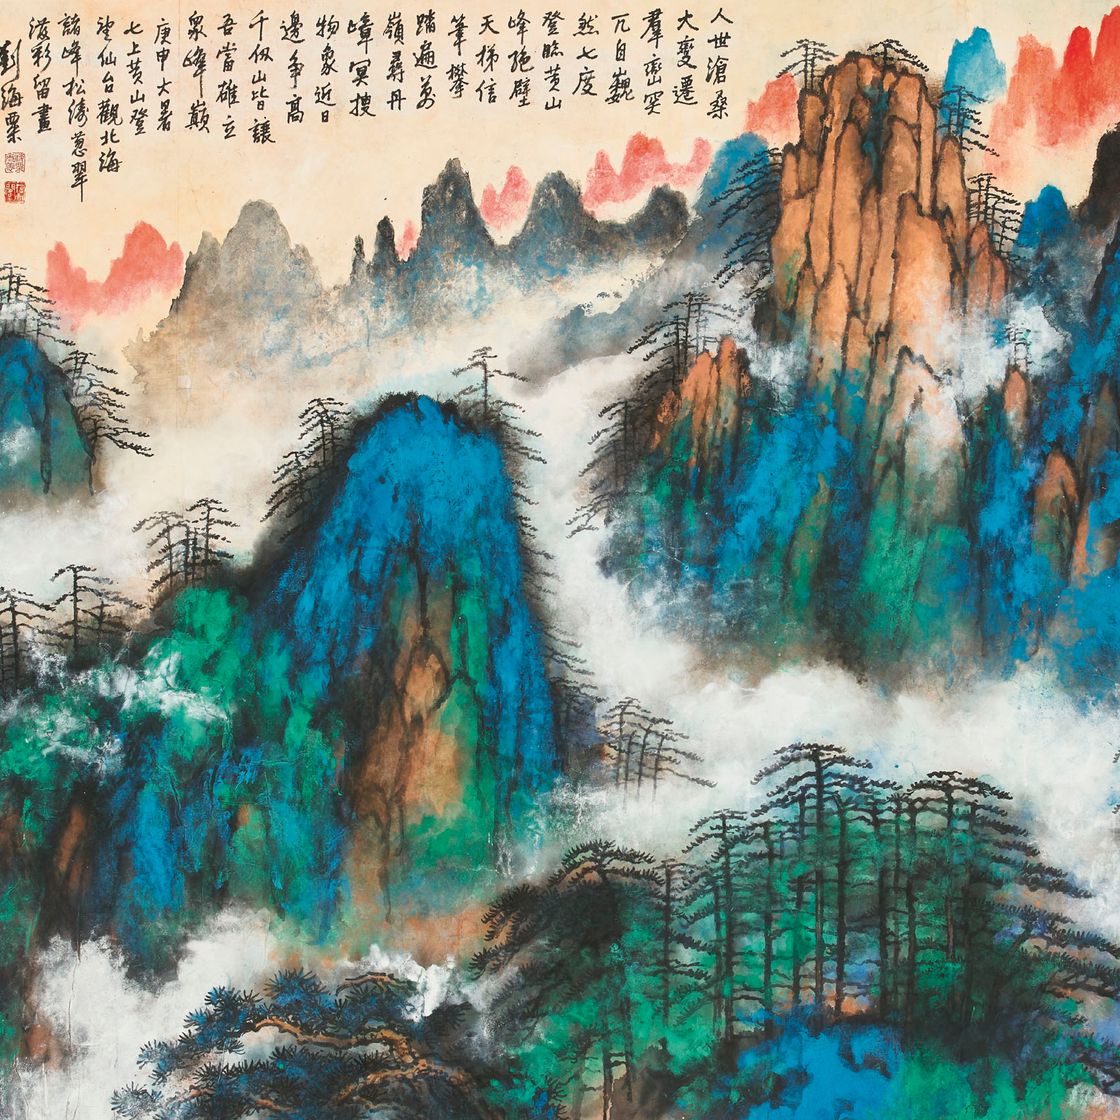 人世滄桑
大變遷
羣巒突
兀自巍
然七度
登臨黄山
峰絕壁
天梯信
筆攀
踏遍萬
嶺尋丹
嶂冥搜
物象近日
邊爭高
千仞山皆讓
吾當雄立
衆峰巔
庚申大暑
七上黄山登
望仙台觀北海
諸峰松濤葱翠
潑彩留畫
劉海粟